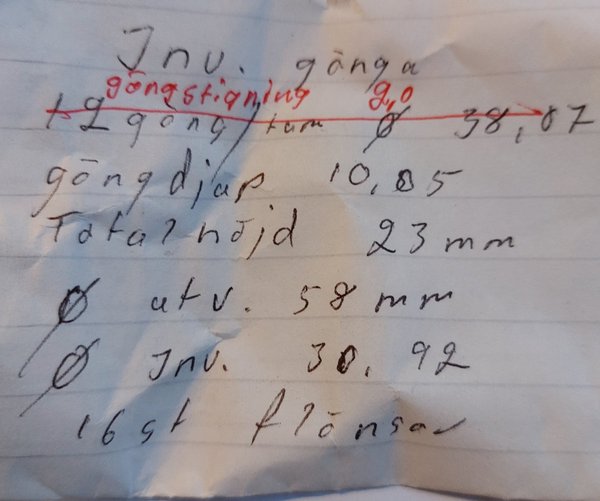 Inv. gänga
gängstigning 2,0
12 gäng/tum Ø 38,07
gängdjup 10,05
Total höjd 23 mm
Ø utv. 58 mm
Ø Inv. 30.92
16 st flänsar